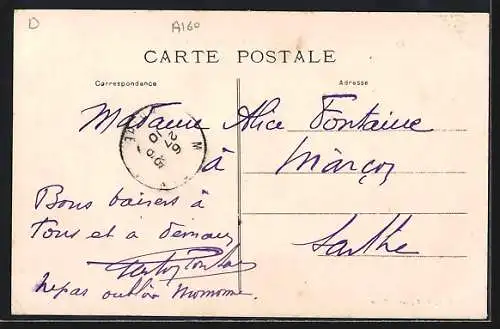 D
A160
CARTE POSTALE
Correspondance
Adresse
Madame Alice Fontaine
à Marçon
Sarthe
Bons baisers à
Tous et à demain
ne pas oublier